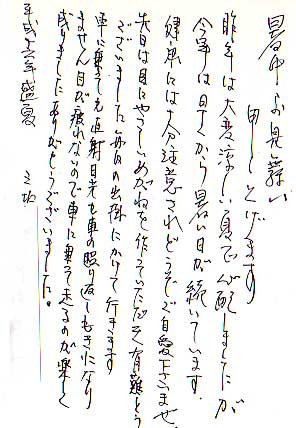 暑中お見舞い
申し上げます
昨年は大変涼しい夏で心配しましたが
今年は早くから暑い日が続いています。
健康には十分注意されどうぞご自愛下さいませ
先日は目にやさしいめがねを作っていただき有難とう
ございました 毎日の出勤にかけて行きます
車に乗っても直射日光も車の照り返しもきになり
ません 目が疲れないので車に乗って走るのが楽しく
成りました ありがとうございました。
平成十六年盛夏